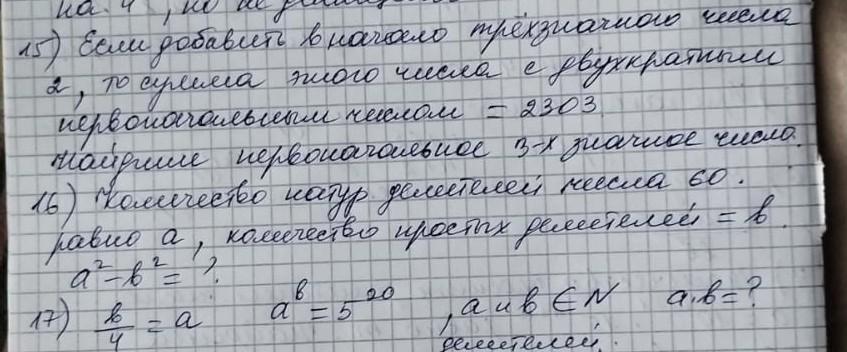 на 4, но не
15) Если добавить в начало трёхзначного числа
2, то сумма этого числа с двухкратным
первоначальным числом = 2303
Найдите первоначальное 3-х значное число.
16) Количество натур делителей числа 60.
равно a, количество простых делителей = b.
a² - b² = ?
17) b/4 = a a^b = 5^20 , a и b ∈ N a·b = ?
делителей.